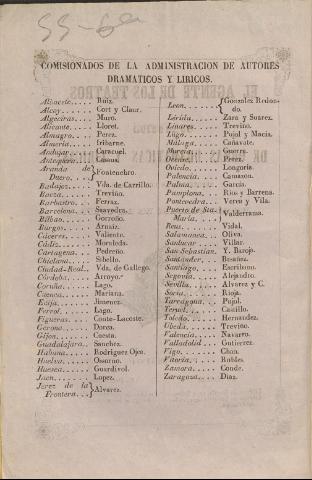 COMISIONADOS DE LA ADMINISTRACION DE AUTORES
DRAMATICOS Y LIRICOS.
Albacete..... Ruiz.
Alcoy....... Cort y Claur.
Algeciras.... Muro.
Alicante..... Lloret.
Almagro.... Perez.
Almería..... Iribarne.
Andujar.... Caracuel.
Antequera... Casaus.
Aranda de
Duero..... Fontenebro.
Badajoz.... Vda. de Carrillo.
Baeza...... Treviño.
Barbastro... Ferraz.
Barcelona... Saavedra.
Bilbao...... Gorroño.
Burgos..... Arnaiz.
Cáceres..... Valiente.
Cádiz...... Moraleda.
Cartagena... Pedreño.
Chiclana.... Sibello.
Ciudad-Real.. Vda. de Gallego.
Córdoba.... Arroyo.
Coruña..... Lago.
Cuenca..... Mariana.
Ecija....... Jimenez.
Ferrol...... Lago.
Figueras.... Conte-Lacoste.
Gerona..... Dorca.
Gijon....... Cuesta.
Guadalajara.. Sanchez.
Habana.... Rodriguez Ojeo.
Huelva..... Osorno.
Huesca..... Guardivol.
Jaen....... Lopez.
Jerez de la
Frontera... Alvarez.
Leon....... Gonzalez Redon-
do.
Lérida..... Zara y Suarez.
Linares.... Treviño.
Lugo...... Pujol y Macía.
Málaga.... Cañavate.
Murcia.... Guerra.
Oviedo.... Perez.
Osuna..... Longoria.
Palencia.... Camazon.
Palma..... García.
Pamplona.. Rios y Barrena.
Pontevedra.. Verea y Vila.
Puerto de Sta.
María.... Valderrama.
Reus...... Vidal.
Salamanca.. Oliva.
Sanlucar... Villar.
San Sebastian. Y. Barojo.
Santander.. Besañez.
Santiago... Escribano.
Segovia.... Alejandro.
Sevilla..... Alvarez y C.
Soria...... Rioja.
Tarragona.. Pujol.
Teruel..... Castillo.
Toledo..... Hernandez.
Ubeda..... Treviño.
Valencia... Navarro.
Valladolid.. Gutierrez.
Vigo...... Chon.
Vitoria.... Robles.
Zamora.... Conde.
Zaragoza... Diaz.